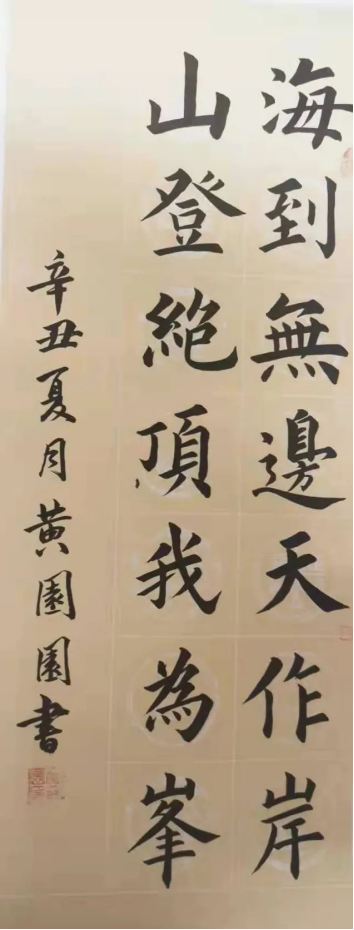 海到無邊天作岸
山登絶頂我為峯
辛丑夏月黄園園書